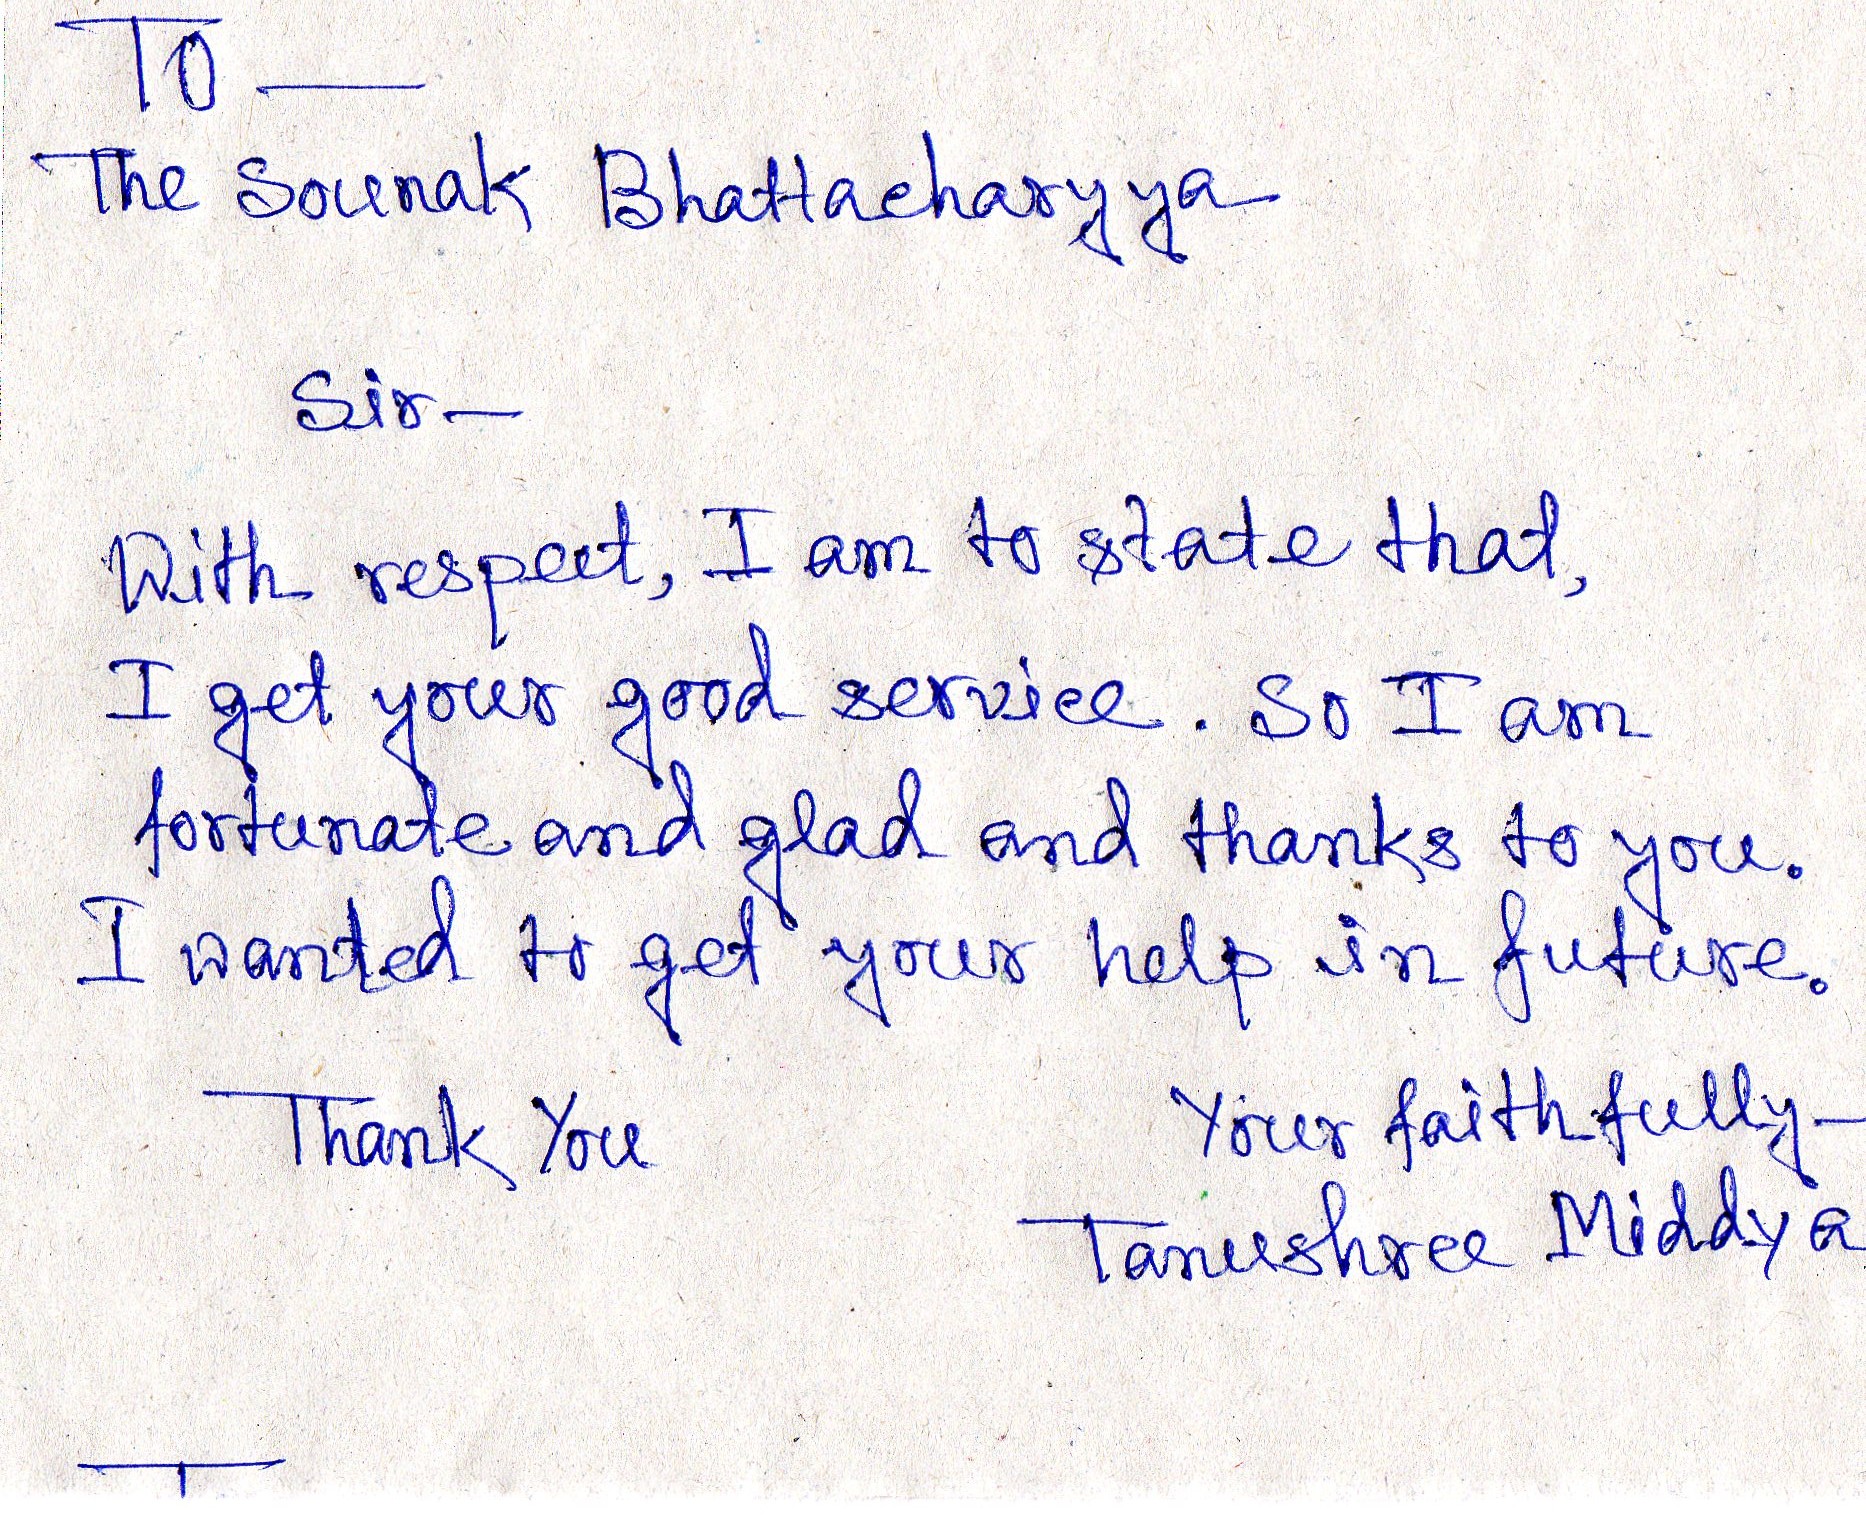 TO —
The Sounak Bhattacharyya
Sir —
With respect, I am to state that,
I get your good service. So I am
fortunate and glad and thanks to you.
I wanted to get your help in future.
Thank You
Your faithfully —
Tanushree Middya